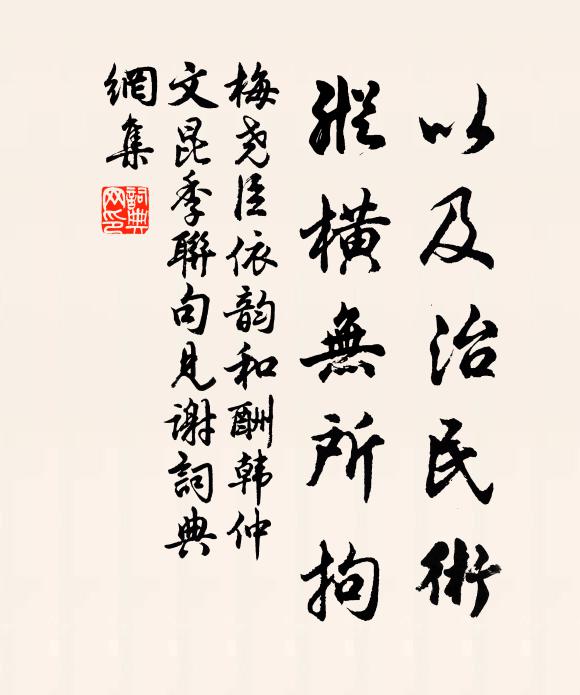 以及治民術
縱橫無所拘
梅尧臣依韵和酬韩仲
文昆季聯句見谢詞典
網集
詞典
网印